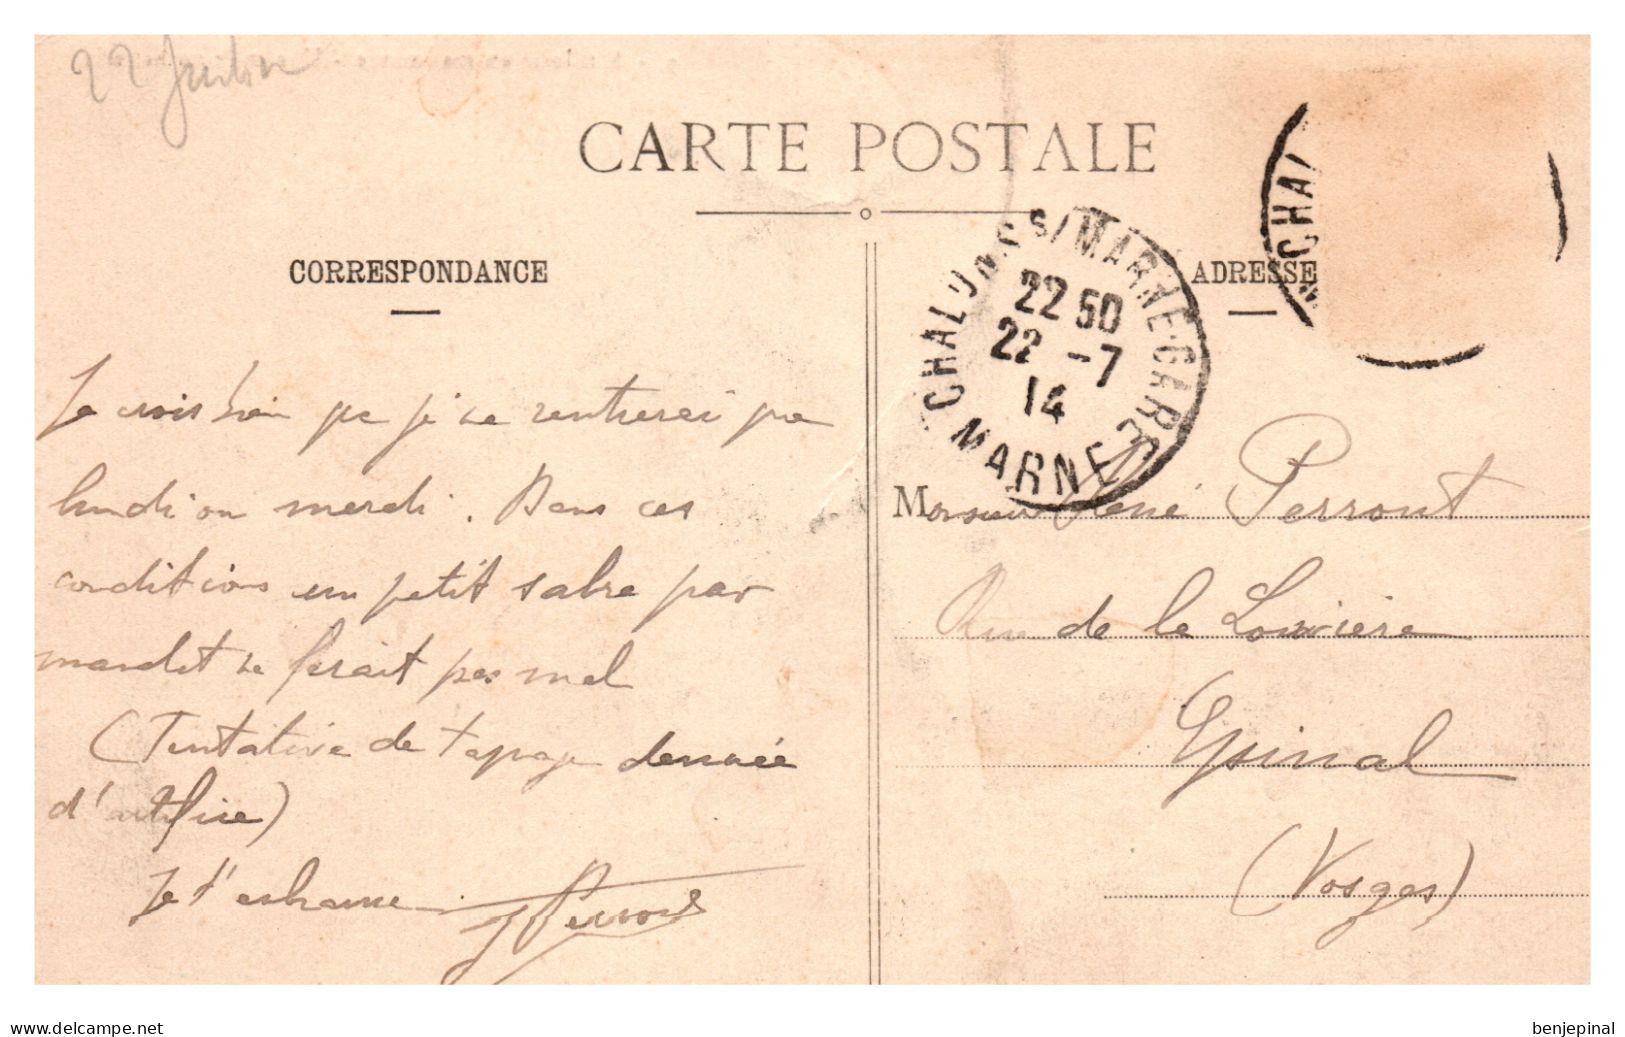 22 Juillet
CARTE POSTALE
CORRESPONDANCE
ADRESSE
CHALONS S/MARNE-GARE
22 50
22 -7
14
MARNE
CHAL
Je crois bien que je ne rentrerai pas
lundi ou mardi. Dans ces
conditions un petit sabre par
mandat ne ferait pas mal
(Tentative de tapage dénuée
d'artifice)
Je t'embrasse
Perrout
Monsieur René Perrout
Rue de la Louvière
Epinal
(Vosges)
www.delcampe.net
benjepinal